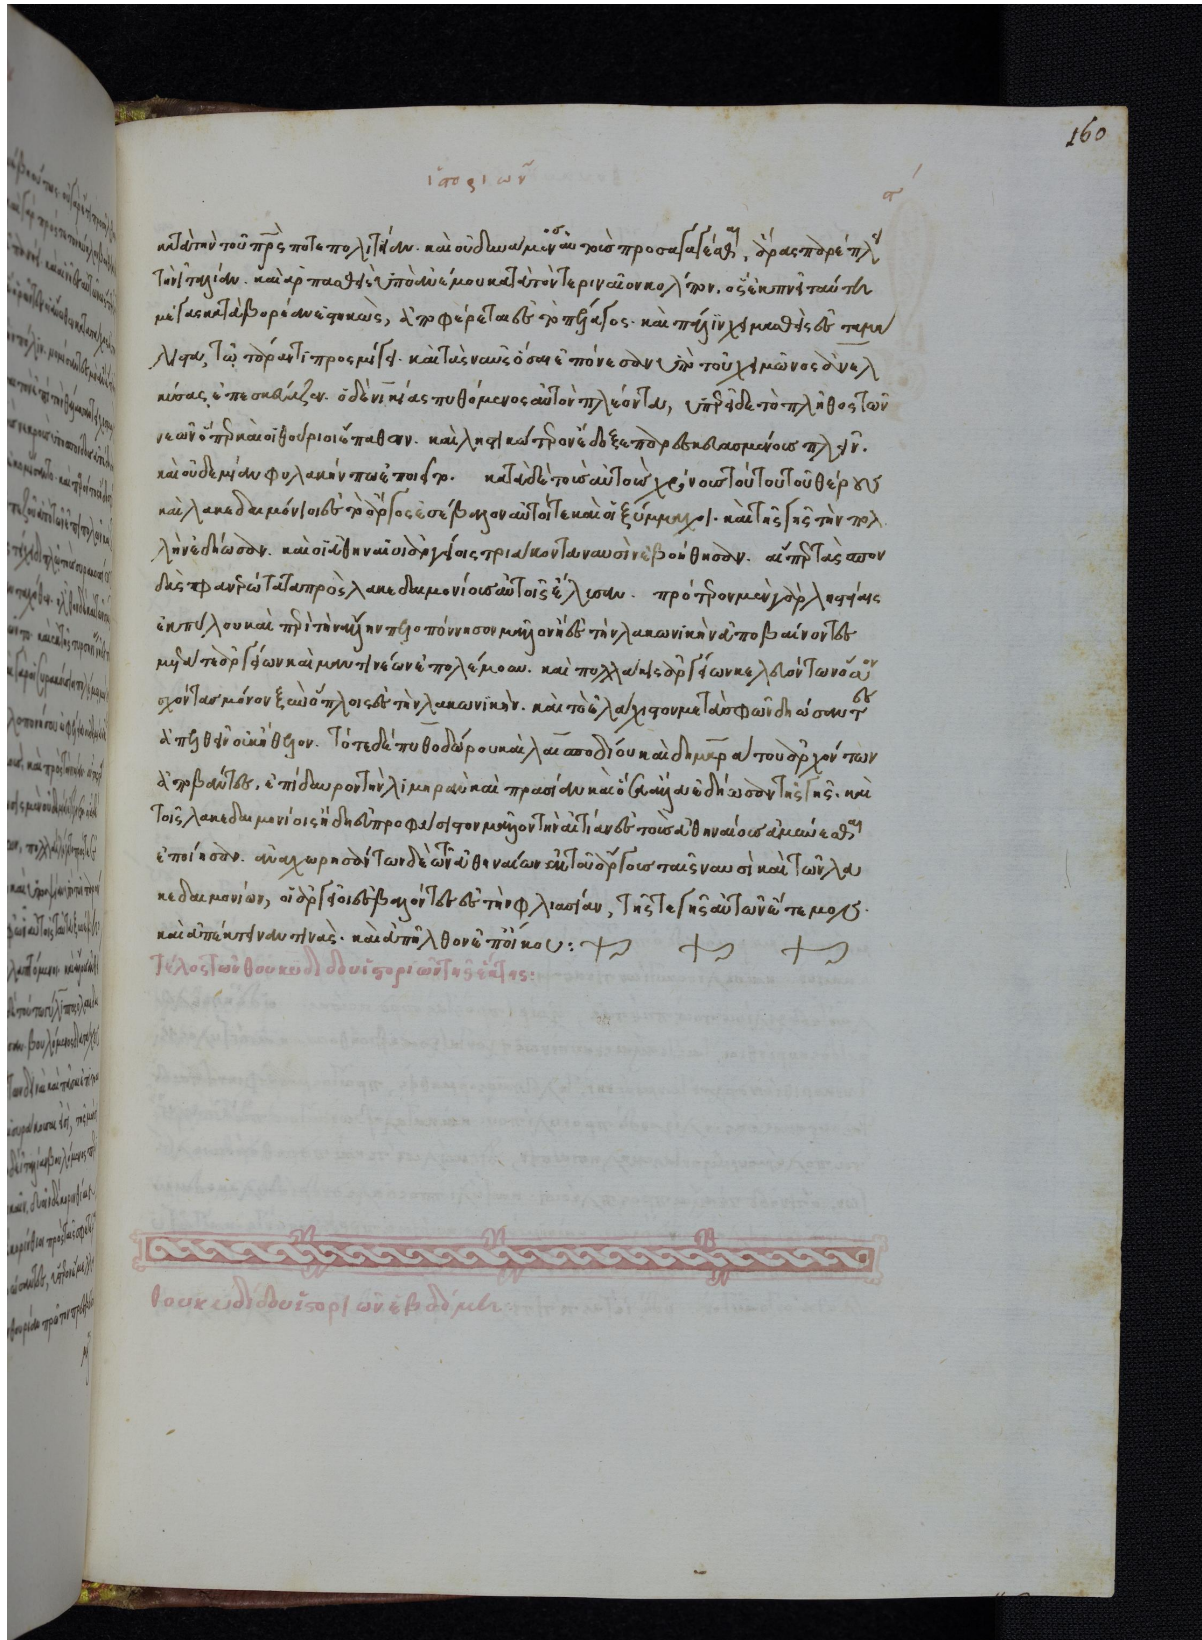 160
ἱστοριῶν
ϛ΄
κατὰ τὴν τοῦ πρς ποτὲ πολιτείαν. καὶ οὐ δυνάμενος αὐτοὺς προσαγαγέσθαι, ἄρας παρέπλει
τὴν ἰταλίαν. καὶ ἁρπασθεὶς ὑπὸ ἀνέμου κατὰ τὸν τεριναῖον κόλπον, ὃς ἐκπνεῖ ταύτη
μέγας κατὰ βορέαν ἑστηκὼς, ἀποφέρεται ἐς τὸ πέλαγος. καὶ πάλιν χειμασθεὶς ἐς τα μά
λιστα, τῶ τάραντι προσμίσγει. καὶ τὰς ναῦς ὅσαι ἐπόνεσαν ὑπὸ τοῦ χειμῶνος ἀνελ
κύσας ἐπεσκεύαζεν. ὁ δὲ νικίας πυθόμενος αὐτὸν πλέοντα, ὑπερεῖδε τὸ πλῆθος τῶν
νεῶν ὅπερ καὶ οἱ θούριοι ἔπαθον. καὶ ληστικώτερον ἔδοξε παρεσκευασμένους πλεῖν.
καὶ οὐδεμίαν φυλακήν πω ἐποιεῖτο. κατὰ δὲ τοὺς αὐτοὺς χρόνους τούτου τοῦ θέρους
καὶ λακεδαιμόνιοι ἐς τὸ ἄργος ἐσέβαλον αὐτοί τε καὶ οἱ ξύμμαχοι. καὶ τῆς γῆς τὴν πολ
λὴν ἐδήωσαν. καὶ οἱ ἀθηναῖοι ἀργείοις τριάκοντα ναυσὶν ἐβοήθησαν. αἵπερ τὰς σπον
δὰς φανερώτατα πρὸς λακεδαιμονίους αὐτοῖς ἔλυσαν. πρότερον μὲν γὰρ ληστείαις
ἐκ πύλου καὶ περὶ τὴν ἄλλην πελοπόννησον μᾶλλον ἢ ἐς τὴν λακωνικὴν ἀποβαίνοντες
μετά τε ἀργείων καὶ μαντινέων ἐπολέμουν. καὶ πολλάκις ἀργείων κελευόντων ὅσον
σχόντας μόνον ξὺν ὅπλοις ἐς τὴν λακωνικὴν. καὶ τὸ ἐλάχιστον μετὰ σφῶν δηώσαντες
ἀπελθεῖν οὐκ ἤθελον. τότε δὲ πυθοδώρου καὶ λαισποδίου καὶ δημαράτου ἀρχόντων
ἀποβάντες, ἐπίδαυρον τὴν λιμηρὰν καὶ πρασίαν καὶ ὅσα ἄλλα ἐδήωσαν τῆς γῆς. καὶ
τοῖς λακεδαιμονίοις ἤδη εὐπροφάσιστον μᾶλλον τὴν αἰτίαν ἐς τοὺς ἀθηναίους ἀμύνεσθαι
ἐποίησαν. ἀναχωρησάντων δὲ τῶν ἀθηναίων ἐκ τοῦ ἄργους ταῖς ναυσὶ καὶ τῶν λα
κεδαιμονίων, οἱ ἀργεῖοι ἐσβαλόντες ἐς τὴν φλιασίαν, τῆς τε γῆς αὐτῶν ἔτεμον.
καὶ ἀπέκτεινάν τινας. καὶ ἀπῆλθον ἐπ' οἴκου :
τέλος τῶν θουκυδίδου ἱστοριῶν τῆς ἕκτης:
θουκυδίδου ἱστοριῶν ἑβδόμη